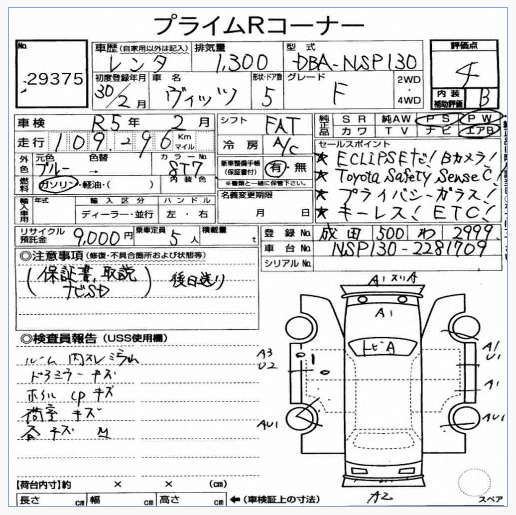 プライムRコーナー
No.
29375
車歴 (自家用以外は記入)
レンタ
排気量
1,300
型式
DBA-NSP130
評価点
4
初度登録年月
30/2月
車名
ヴィッツ
形状・ドア数
5
グレード
F
2WD
4WD
内装
補助評価
B
車検
R5年 2月
走行
109,296
Km
マイル
シフト
FAT
冷房
A/C
純正品
SR 純AW PS PW
カワ TV ナビ エアB
外色
元色
ブルー
色替
→
カラーNo.
8T7
内装色
燃料
ガソリン・軽油・( )
新車整備手帳
(保証書付)
有・無
※書類と一緒に保管下さい。
セールスポイント
★ ECLIPSEナビ!Bカメラ!
★ Toyota Safety Sense C!
★ プライバシーガラス!
★ キーレス! ETC!
輸入車
年式
輸入区分
ディーラー・並行
ハンドル
左・右
名義変更期限
月 日
リサイクル
預託金
9,000円
乗車定員
5人
積載量
t
登録No
成田 500 わ 2999
車台No
NSP130-2281709
シリアルNo
◎注意事項 (修復・不具合箇所および状態等)
(保証書、取説
ナビSD) 後日送り
◎検査員報告 (USS使用欄)
ルーム内スレ
ドアミラーキズ
ホイルcpキズ
荷室キズ
A1スリA
A1
トビA
A3
U2
A1
U1
A1
AU1
AU1
A2
スペア
【荷台内寸】約 × × (cm)
長さ cm 幅 cm 高さ cm ←(車検証上の寸法)